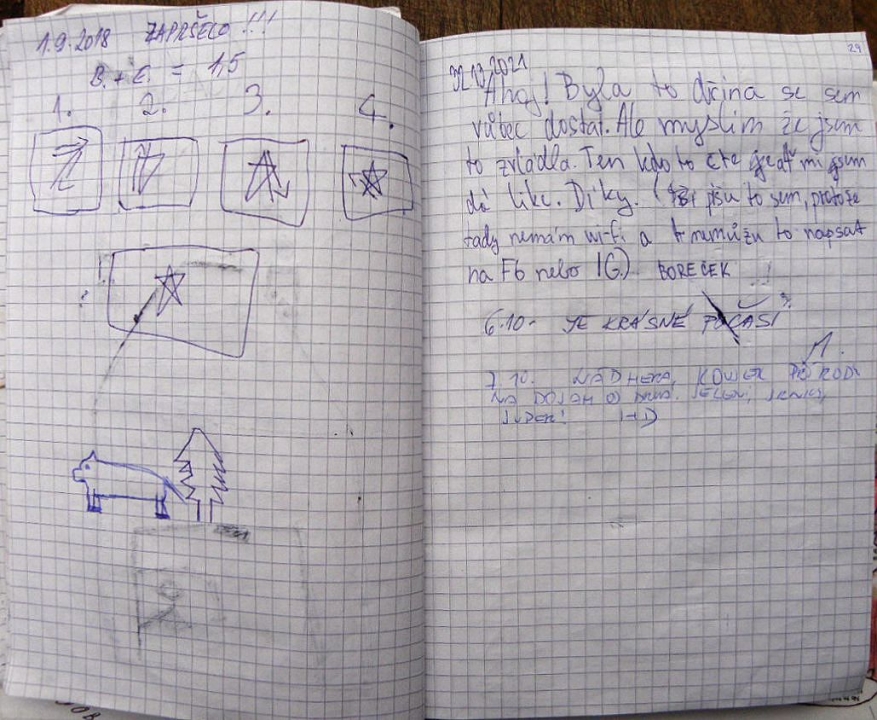 1.9.2018 ZAPRŠELO !!!
B. + E. = 1,5
1. 2. 3. 4.
29
2021
Ahoj! Byla to dřina se sem
vůbec dostat. Ale myslim že jsem
to zvládla. Ten kdo to čte
dá like. Díky. píšu to sem, protože
tady nemám wi-fi a nemůžu to napsat
na Fb nebo IG.) BOREČEK !!
6.10. JE KRÁSNÉ POČASÍ
M.
7.10. NÁDHERA, KOUSEK PŘÍRODY
NA DOSAH OD
SUPER! :-D